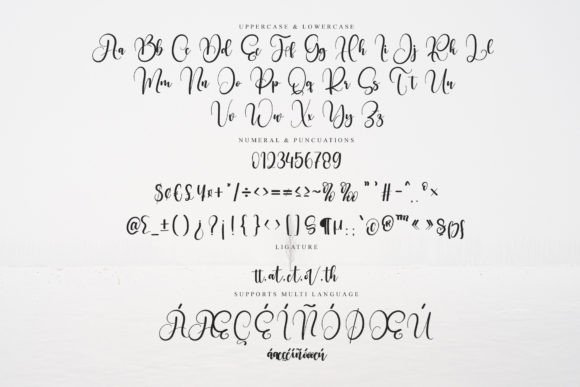 UPPERCASE & LOWERCASE
Aa Bb Cc Dd Ee Ff Gg Hh Ii Jj Kk Ll
Mm Nn Oo Pp Qq Rr Ss Tt Uu
Vv Ww Xx Yy Zz
NUMERAL & PUNCUATIONS
0123456789
$¢€£¥¤+*/÷<>=≠≤≥~%‰"'#-^..ºx
@&_±()¿?¡!{}<>[]§¶µ:;`©®™«»
LIGATURE
tt.at.ct.of.th
SUPPORTS MULTI LANGUAGE
ÁÆÇÉÍÑÓØŒÚ
áæçéíñóøœú